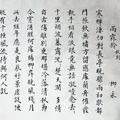 雨霖鈴 柳永
寒蟬淒切對長亭晚驟雨初歇都
門帳飲無緒留戀處蘭舟催發
執手相看淚眼竟無語凝噎念去去
千里煙波暮靄沉沉楚天闊多情
自古傷離別更那堪冷落清秋節
今宵酒醒何處楊柳岸曉風殘月
此去經年應是良辰好景虛設便
縱有千種風情更與何人說